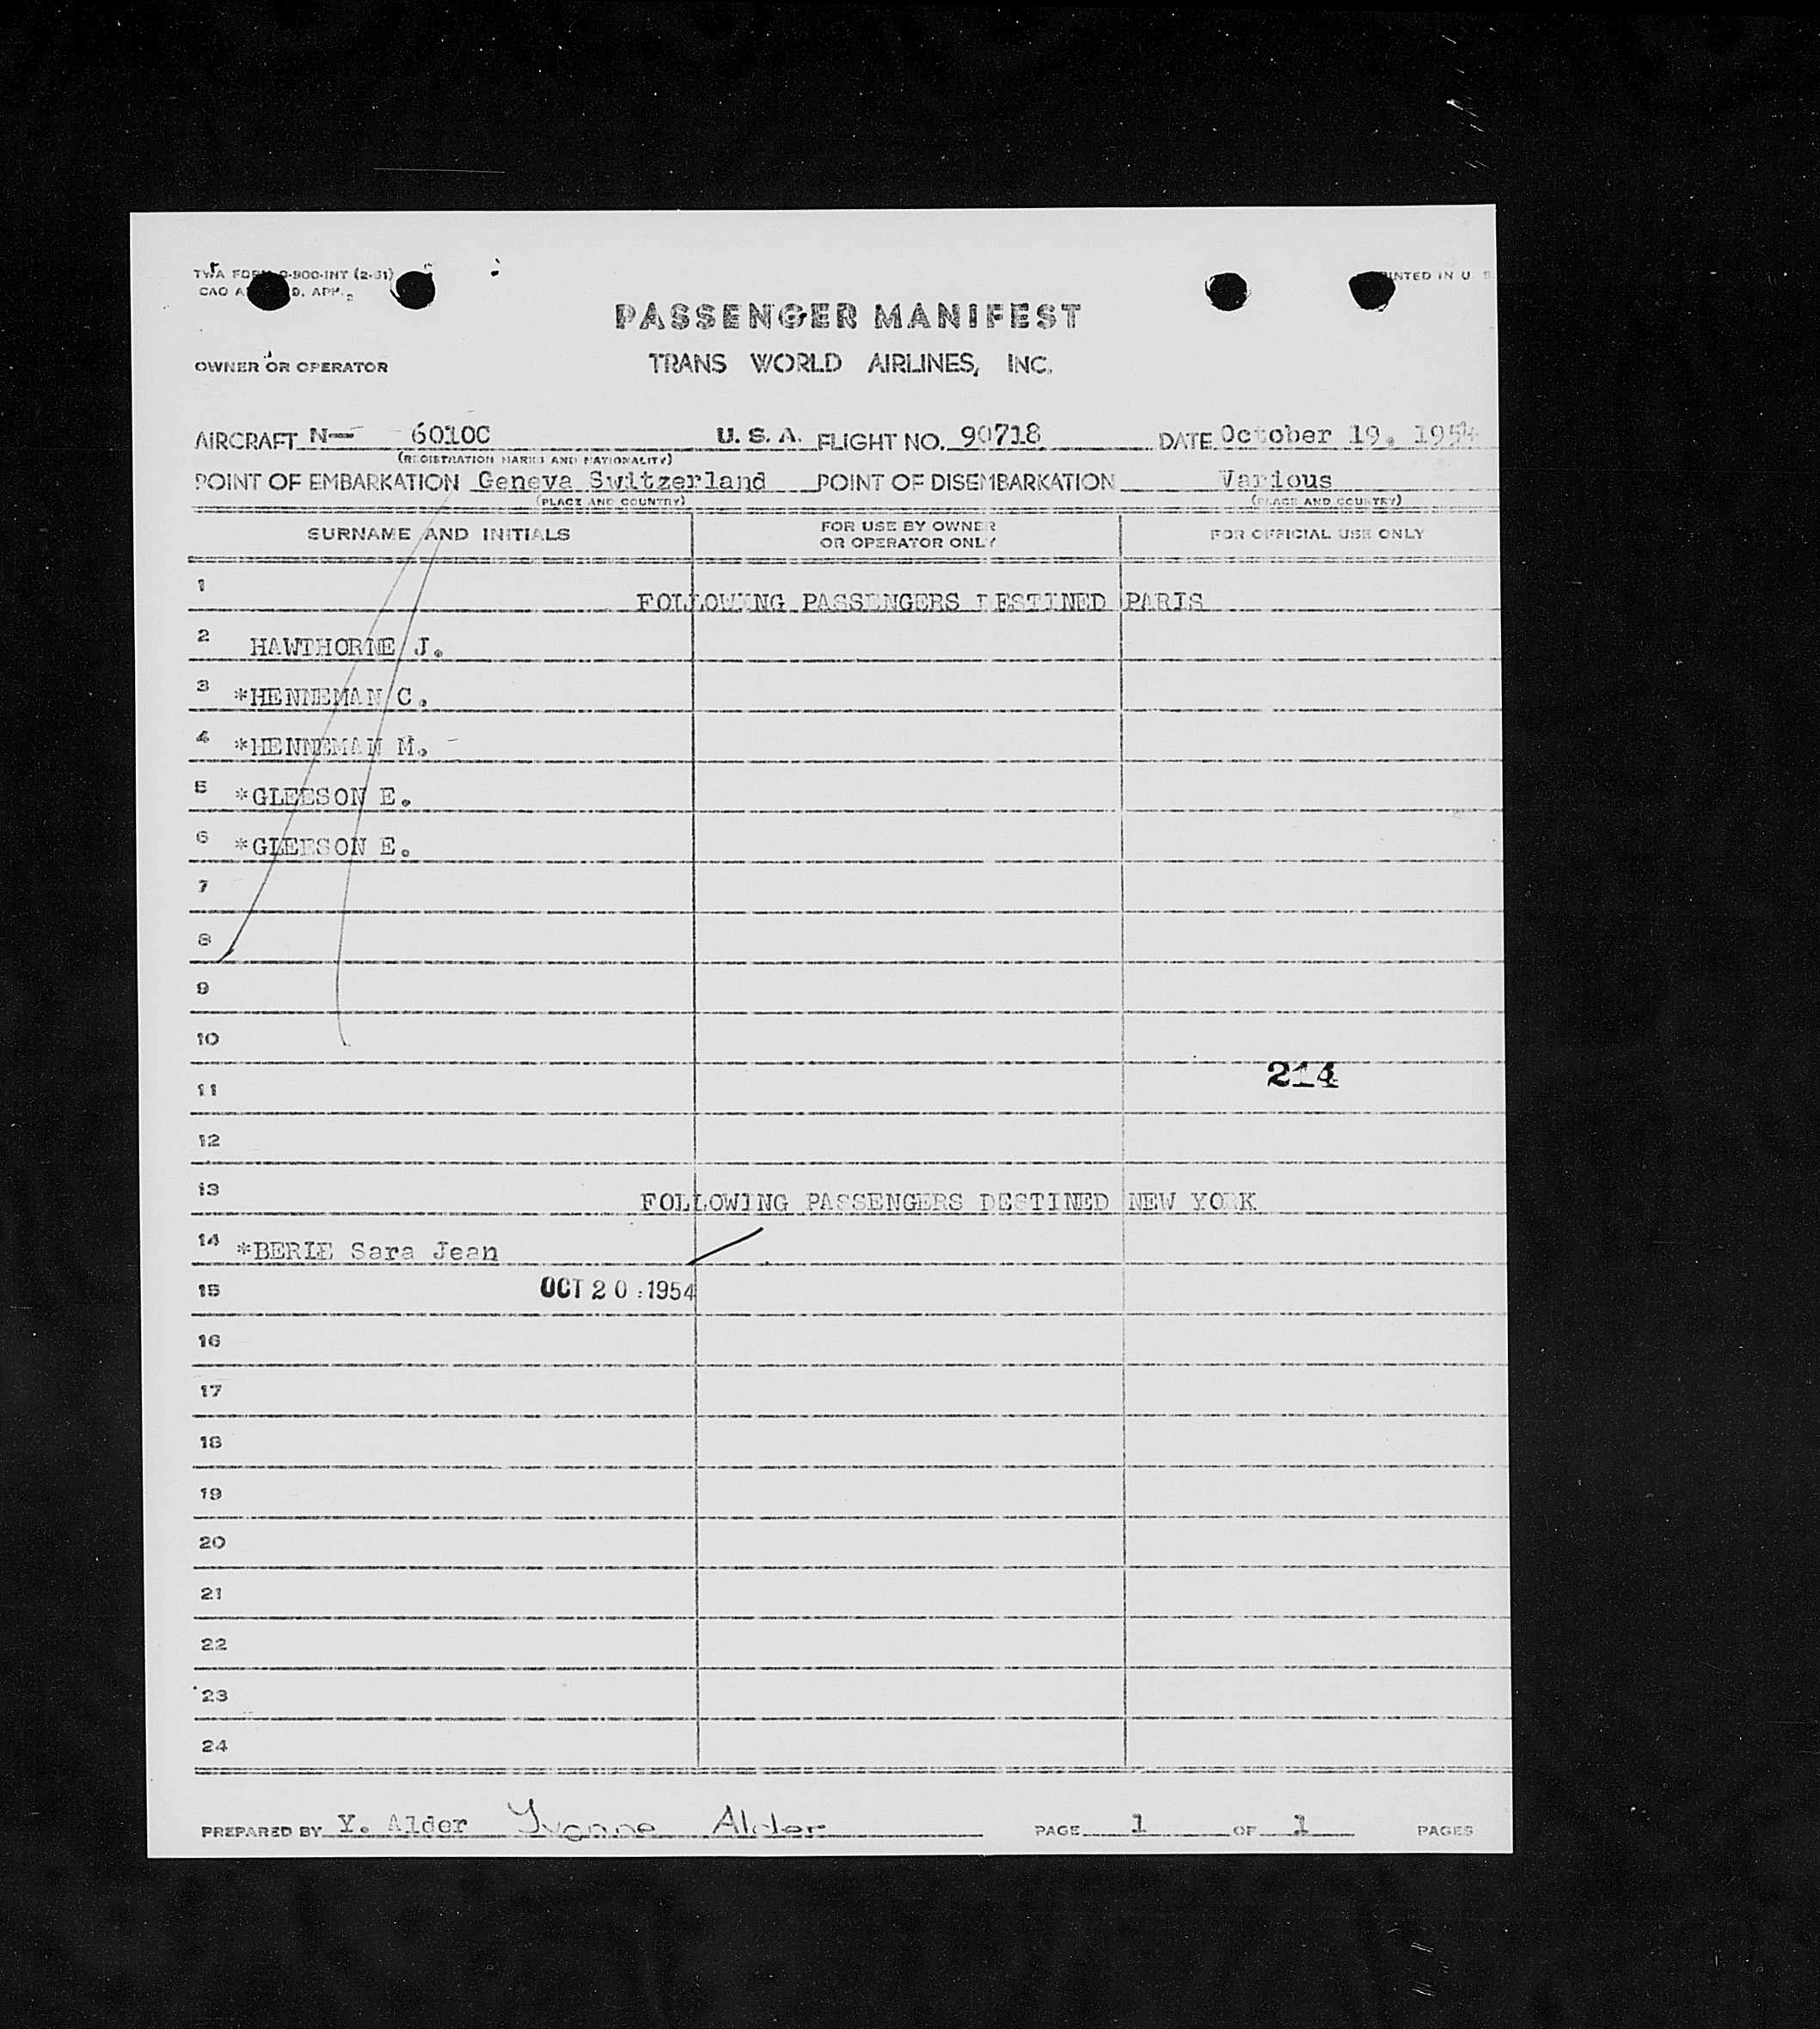 TWA FORM O-900-INT (2-51)
PRINTED IN U. S.
CAO A D. APP.
PASSENGER MANIFEST
OWNER OR OPERATOR
TRANS WORLD AIRLINES, INC.
AIRCRAFT N— 6010C U. S. A. FLIGHT NO. 90718 DATE October 19, 1954
(REGISTRATION MARKS AND NATIONALITY)
POINT OF EMBARKATION Geneva Switzerland POINT OF DISEMBARKATION Various
(PLACE AND COUNTRY) (PLACE AND COUNTRY)
SURNAME AND INITIALS
FOR USE BY OWNER
OR OPERATOR ONLY
FOR OFFICIAL USE ONLY
1 FOLLOWING PASSENGERS DESTINED PARIS
2 HAWTHORNE J.
3 *HENNEMAN C.
4 *HENNEMAN M.
5 *GLEESON E.
6 *GLEESON E.
7
8
9
10
11 214
12
13 FOLLOWING PASSENGERS DESTINED NEW YORK
14 *BERIE Sara Jean
15 OCT 20 1954
16
17
18
19
20
21
22
23
24
PREPARED BY Y. Alder Yvonne Alder PAGE 1 OF 1 PAGES